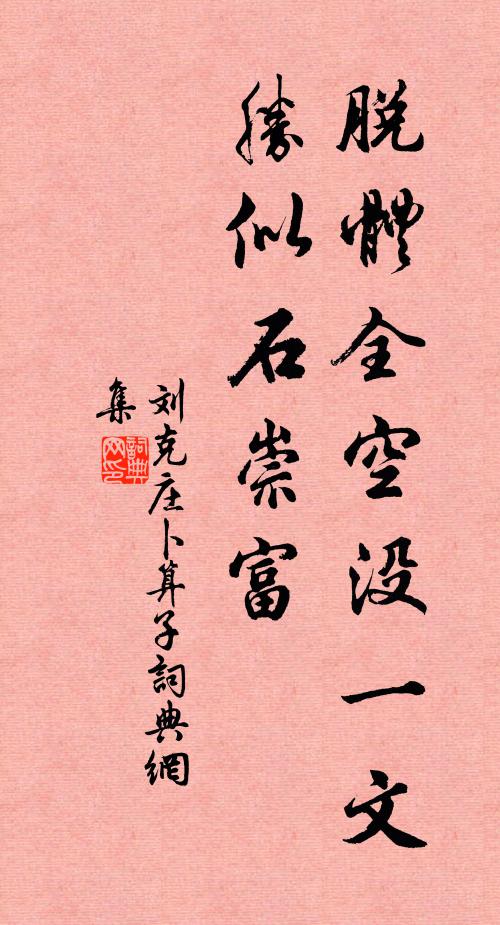 脫體全空没一文
勝似石崇富
刘克庄卜算子詞典網
集
詞典网印